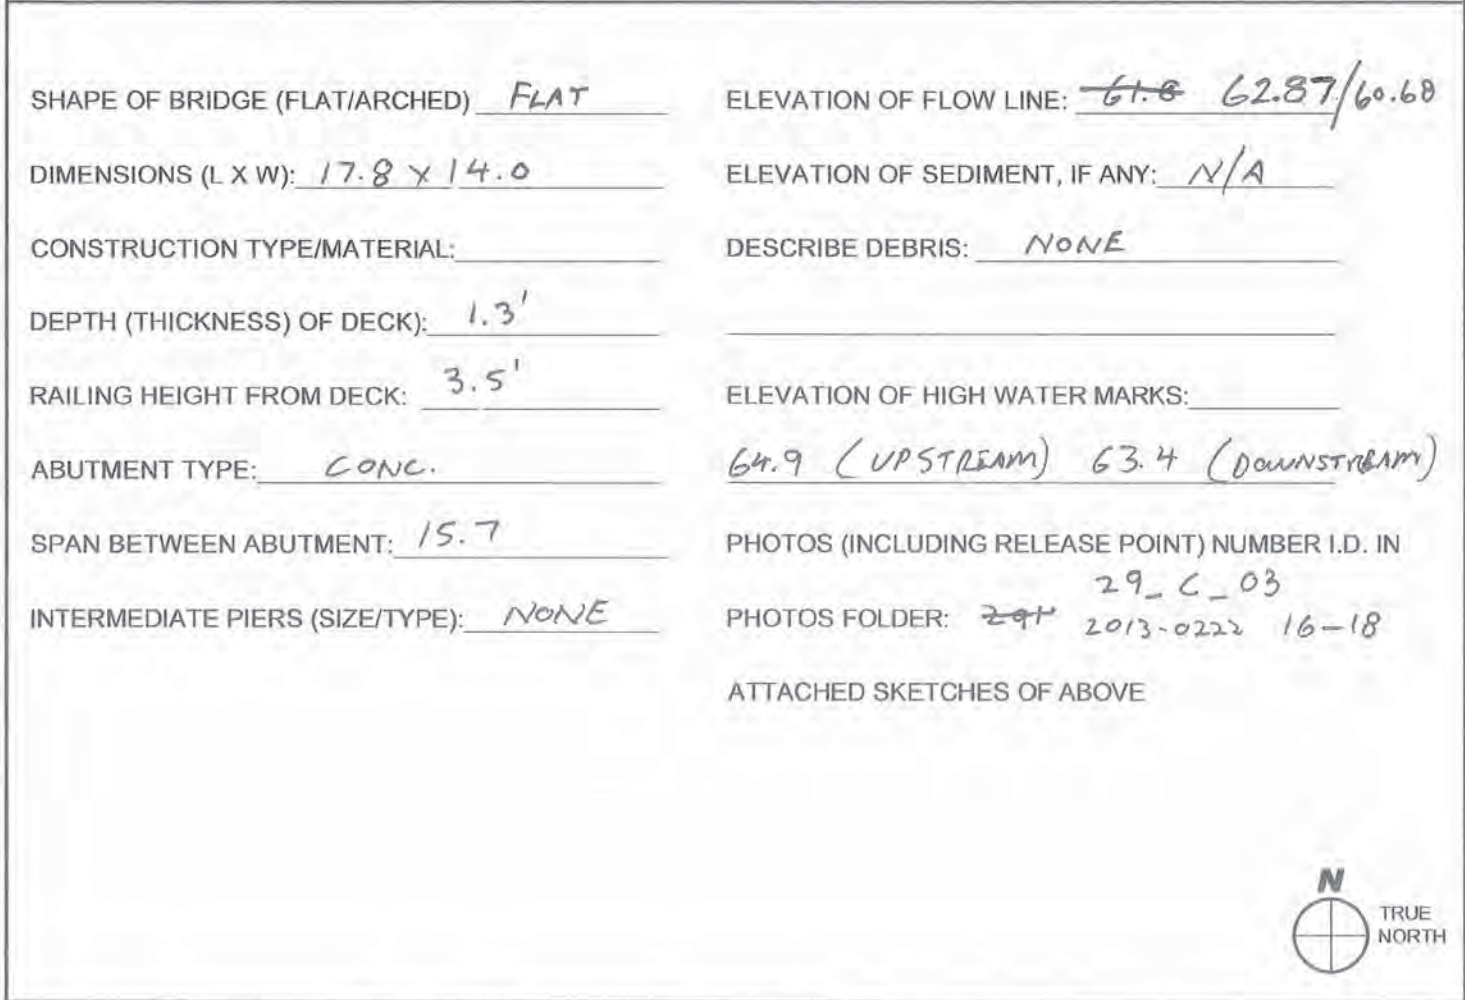 SHAPE OF BRIDGE (FLAT/ARCHED) FLAT
DIMENSIONS (L X W): 17.8 x 14.0
CONSTRUCTION TYPE/MATERIAL:
DEPTH (THICKNESS) OF DECK): 1.3'
RAILING HEIGHT FROM DECK: 3.5'
ABUTMENT TYPE: CONC.
SPAN BETWEEN ABUTMENT: 15.7
INTERMEDIATE PIERS (SIZE/TYPE): NONE
ELEVATION OF FLOW LINE: 61.8 62.87/60.68
ELEVATION OF SEDIMENT, IF ANY: N/A
DESCRIBE DEBRIS: NONE
ELEVATION OF HIGH WATER MARKS:
64.9 (UPSTREAM) 63.4 (DOWNSTREAM)
PHOTOS (INCLUDING RELEASE POINT) NUMBER I.D. IN
29_C_03
PHOTOS FOLDER: 2013-0222 16-18
ATTACHED SKETCHES OF ABOVE
N
TRUE
NORTH